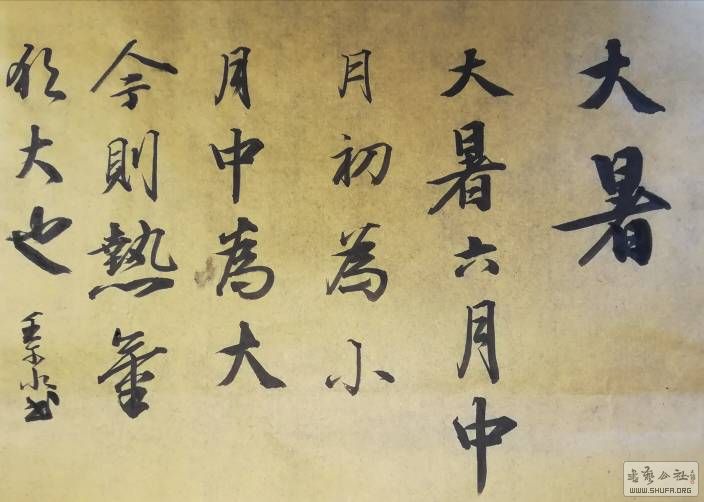 大暑
大暑六月中
月初為小
月中為大
今則熱
犹大也
书艺公社
WWW.SHUFA.ORG